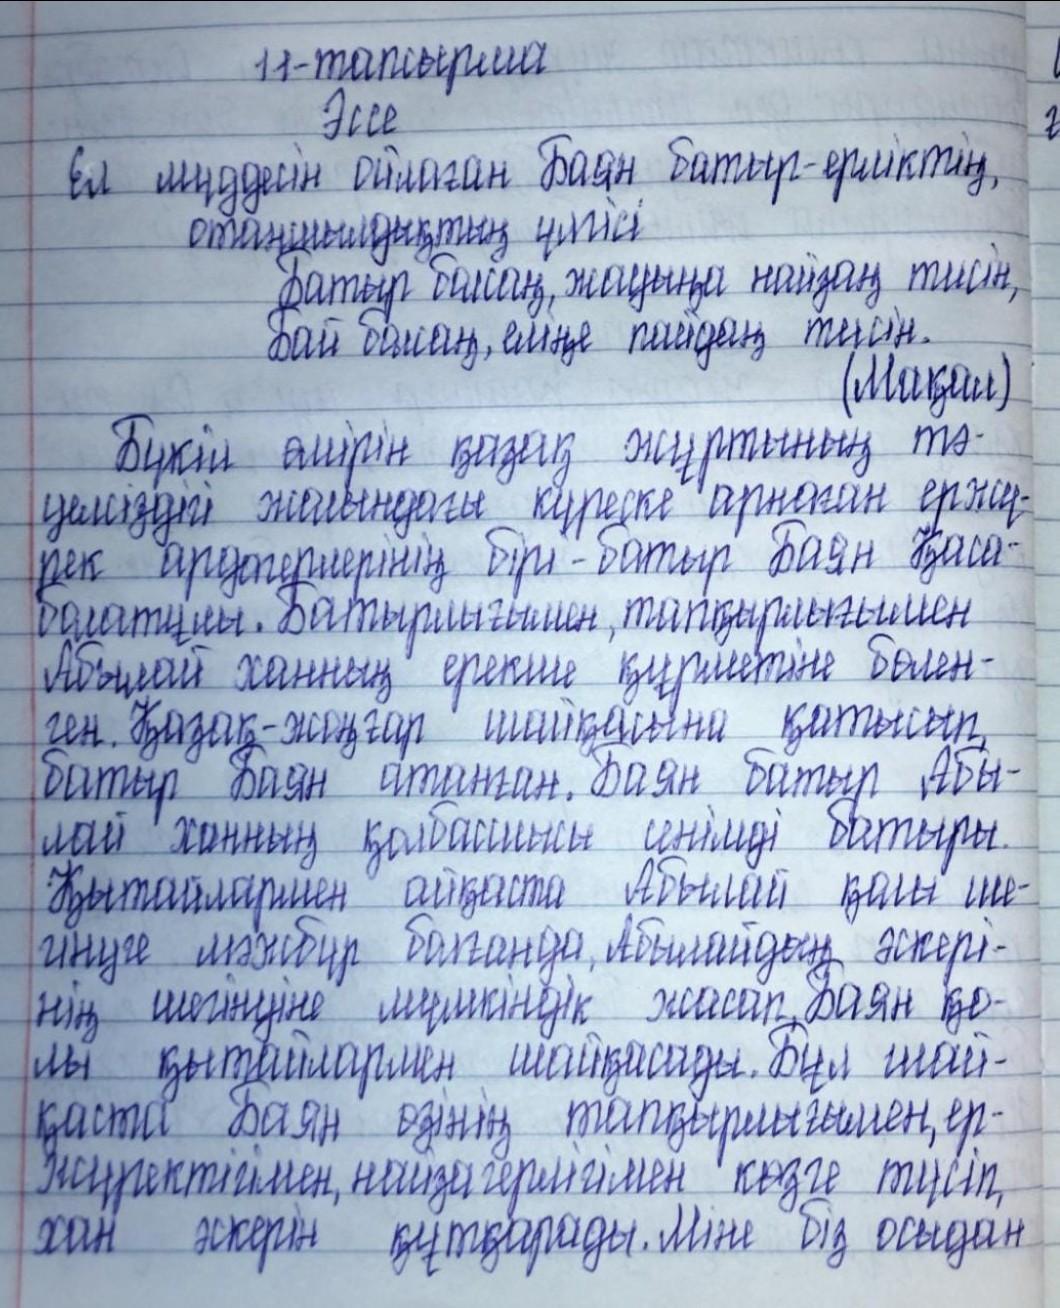 11-тапсырма
Эссе
Ел мүддесін ойлаған Баян батыр-ерліктің,
отаншылдықтың үлгісі
Батыр болсаң, жауыңа найзаң тисін,
Бай болсаң, еліңе пайдаң тисін.
(Мақал)
Бүкіл өмірін қазақ жұртының тә-
уелсіздігі жолындағы күреске арнаған ержү-
рек ардагерлерінің бірі-батыр Баян Қаса-
болатұлы. Батырлығымен, тапқырлығымен
Абылай ханның ерекше құрметіне бөлен-
ген. Қазақ-жоңғар шайқасына қатысып,
батыр Баян атанған. Баян батыр Абы-
лай ханның қолбасшысы сенімді батыры.
Қытайлармен айқаста Абылай қолы ше-
гінуге мәжбүр болғанда, Абылайдың әскері-
нің шегінуіне мүмкіндік жасап, Баян қо-
лы қытайлармен шайқасады. Бұл шай-
қаста Баян өзінің тапқырлығымен, ер-
жүректігімен, найзагерлігімен көзге түсіп,
хан әскерін құтқарады. Міне біз осыдан